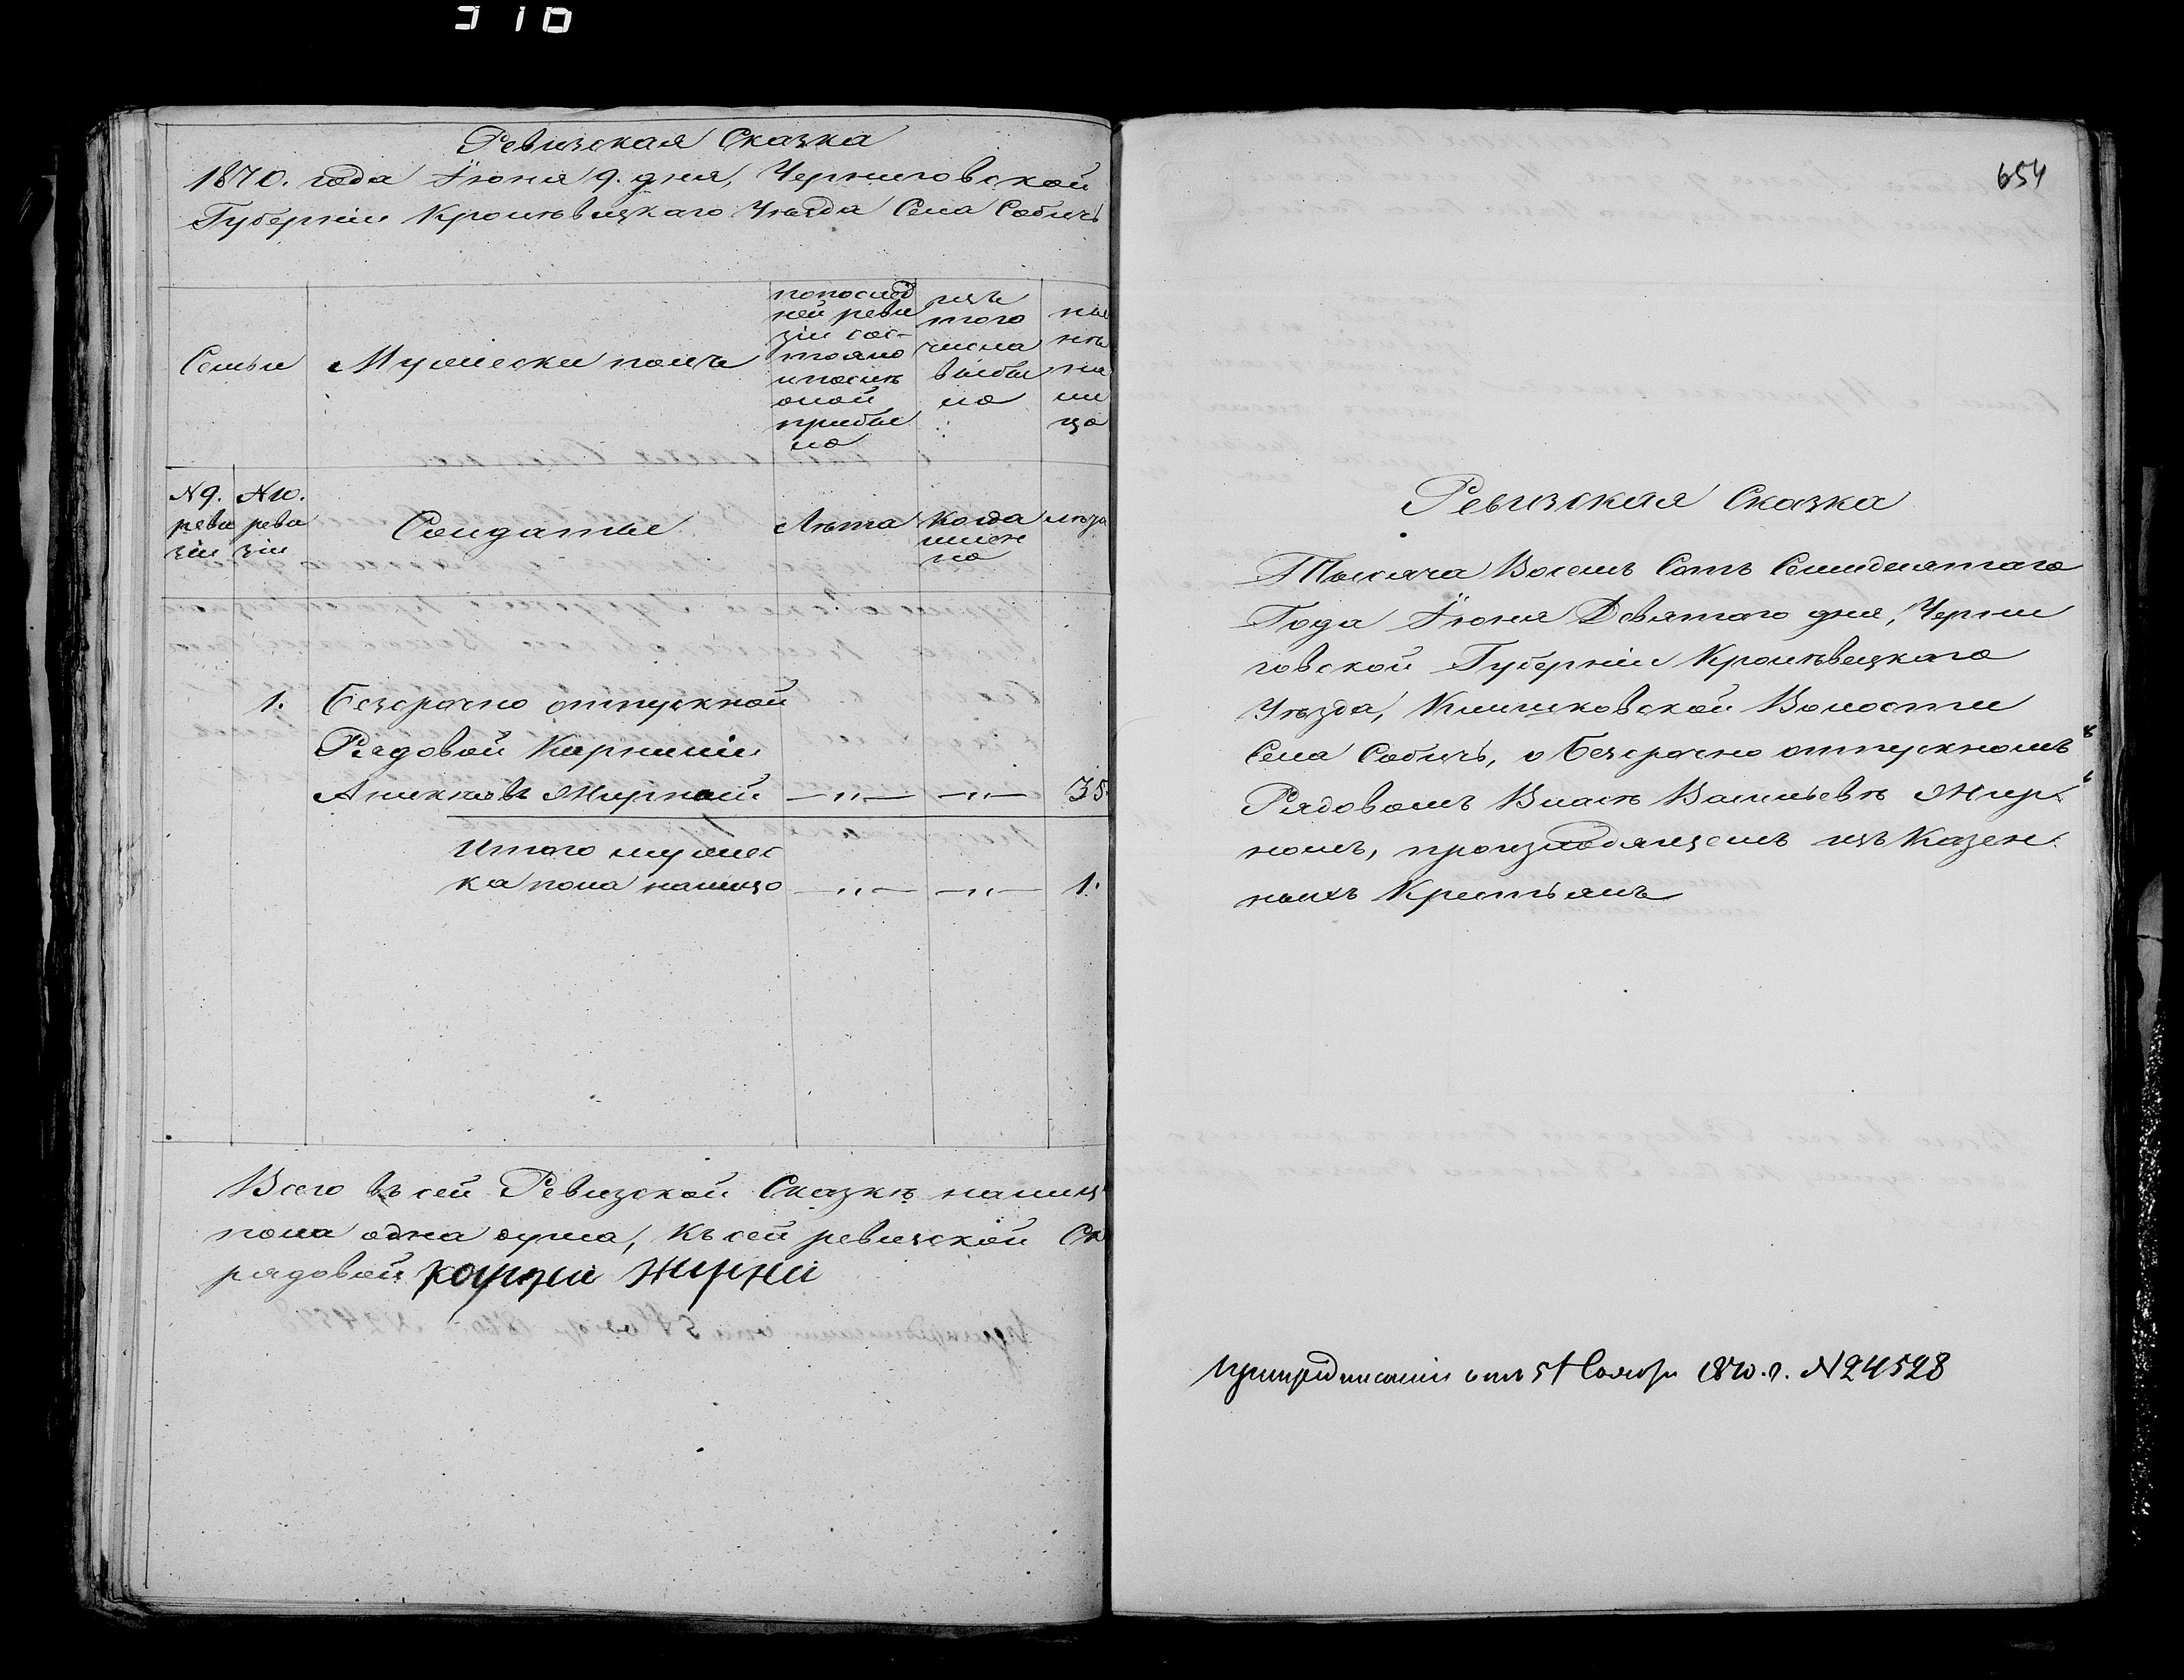 310
Ревизская Сказка
1870. года Іюня 9. дня, Черниговской
Губерніи Кролѣвецкаго Уѣзда Села Собичь
Семьи
Мужески полъ
по послѣд
ней реви
зіи сос-
тояло
и послѣ
оной
прибы
ло
изъ
того
числа
выбы
ло
ны
нѣ
на
ли
цо
N 9.
реви
зіи
N 10.
реви
зіи
Солдаты
Лѣта
Когда
имен
но
лѣта
1. Безсрочно отпускной
Рядовой Карнилій
Жирной —„— —„— 35
Итого мужес
ка пола налицо —„— —„— 1.
Всего въ сей Ревизской Сказкѣ налиц
пола одна душа, Къ сей ревизской Ск
рядовой Жирни
654
Ревизская Сказка
Тысяча Восемь Сотъ Семидесятаго
Года Іюня Девятаго дня, Черни
говской Губерніи Кролѣвецкаго
Уѣзда, Клишковской Волости
Села Собичь, о безсрочно отпускномъ
Рядовомъ Власѣ Васильевѣ Жир
номъ, произходящемъ изъ Казен
ныхъ Крестьянъ
При предписаніи отъ 5 Ноября 1870. г. N 24528